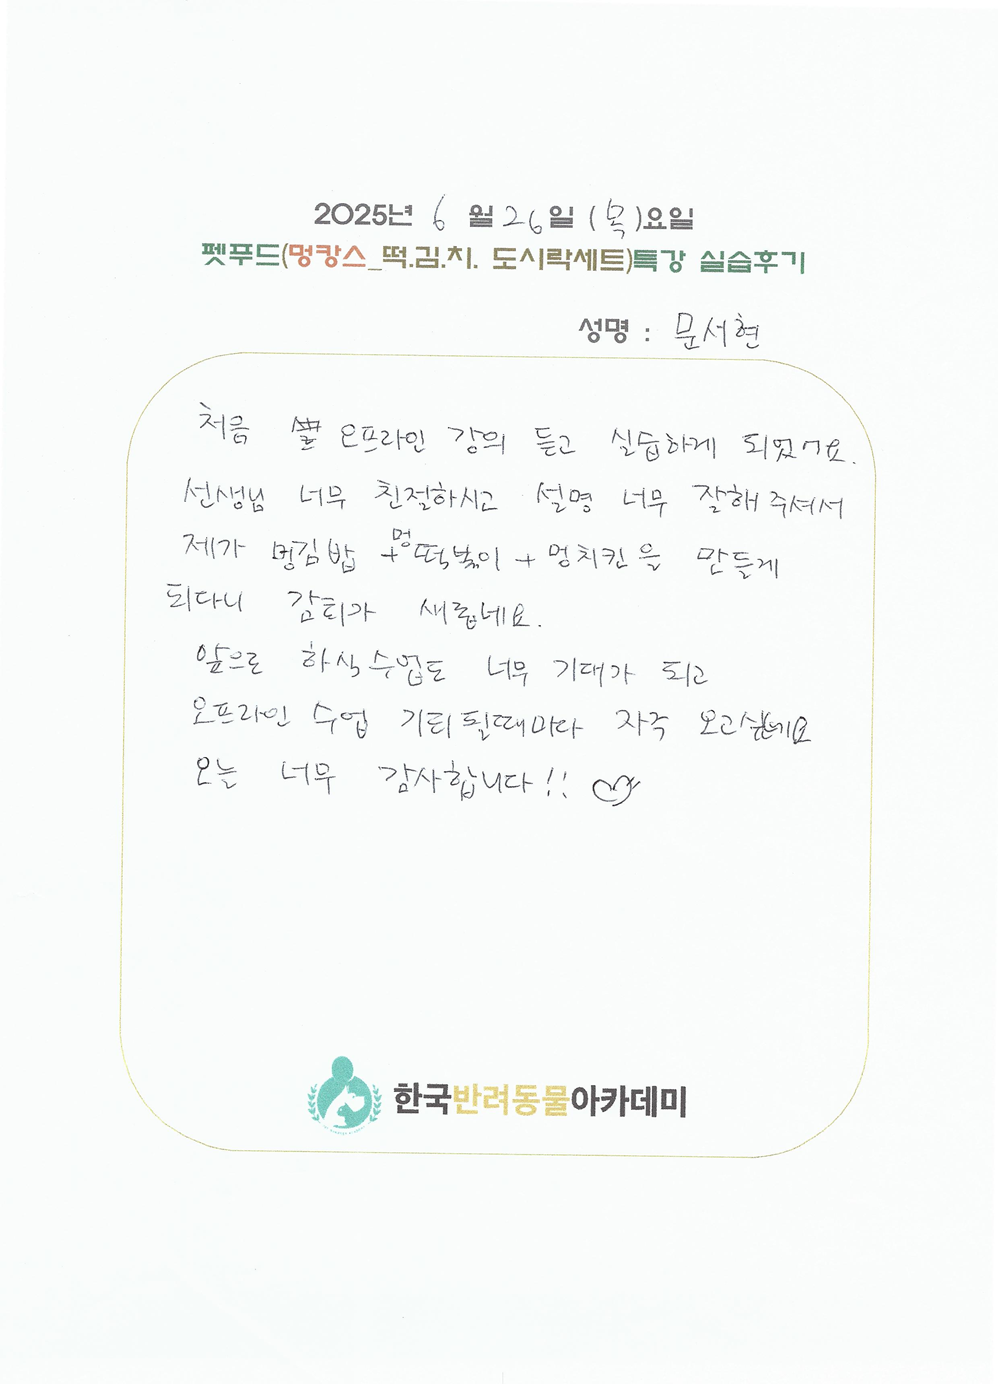 2025년 6월 26일 (목)요일
펫푸드(멍캉스_떡.김.치. 도시락세트)특강 실습후기
성명 : 문서현
처음 오프라인 강의 듣고 실습하게 되었어요.
선생님 너무 친절하시고 설명 너무 잘해주셔서
제가 멍김밥 + 멍떡볶이 + 멍치킨을 만들게
되다니 감회가 새롭네요.
앞으로 화식수업도 너무 기대가 되고
오프라인 수업 기회될때마다 자주 오고싶네요
오늘 너무 감사합니다!!
한국반려동물아카데미